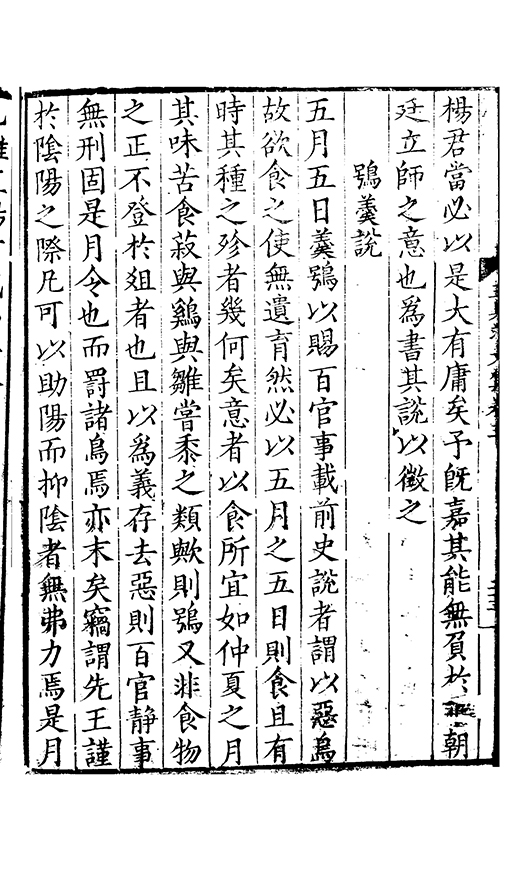 楊君當必以是大有庸矣予旣嘉其能無負於朝
廷立師之意也為書其說以徵之
鴞羹說
五月五日羹鴞以賜百官事載前史說者謂以惡鳥
故欲食之使無遺育然必以五月之五日則食且有
時其種之殄者幾何矣意者以食所宜如仲夏之月
其味苦食菽與鷄與雛嘗黍之類歟則鴞又非食物
之正不登於俎者也且以為義存去惡則百官静事
無刑固是月令也而罸諸鳥焉亦末矣竊謂先王謹
於陰陽之際凡可以助陽而抑陰者無弗力焉是月